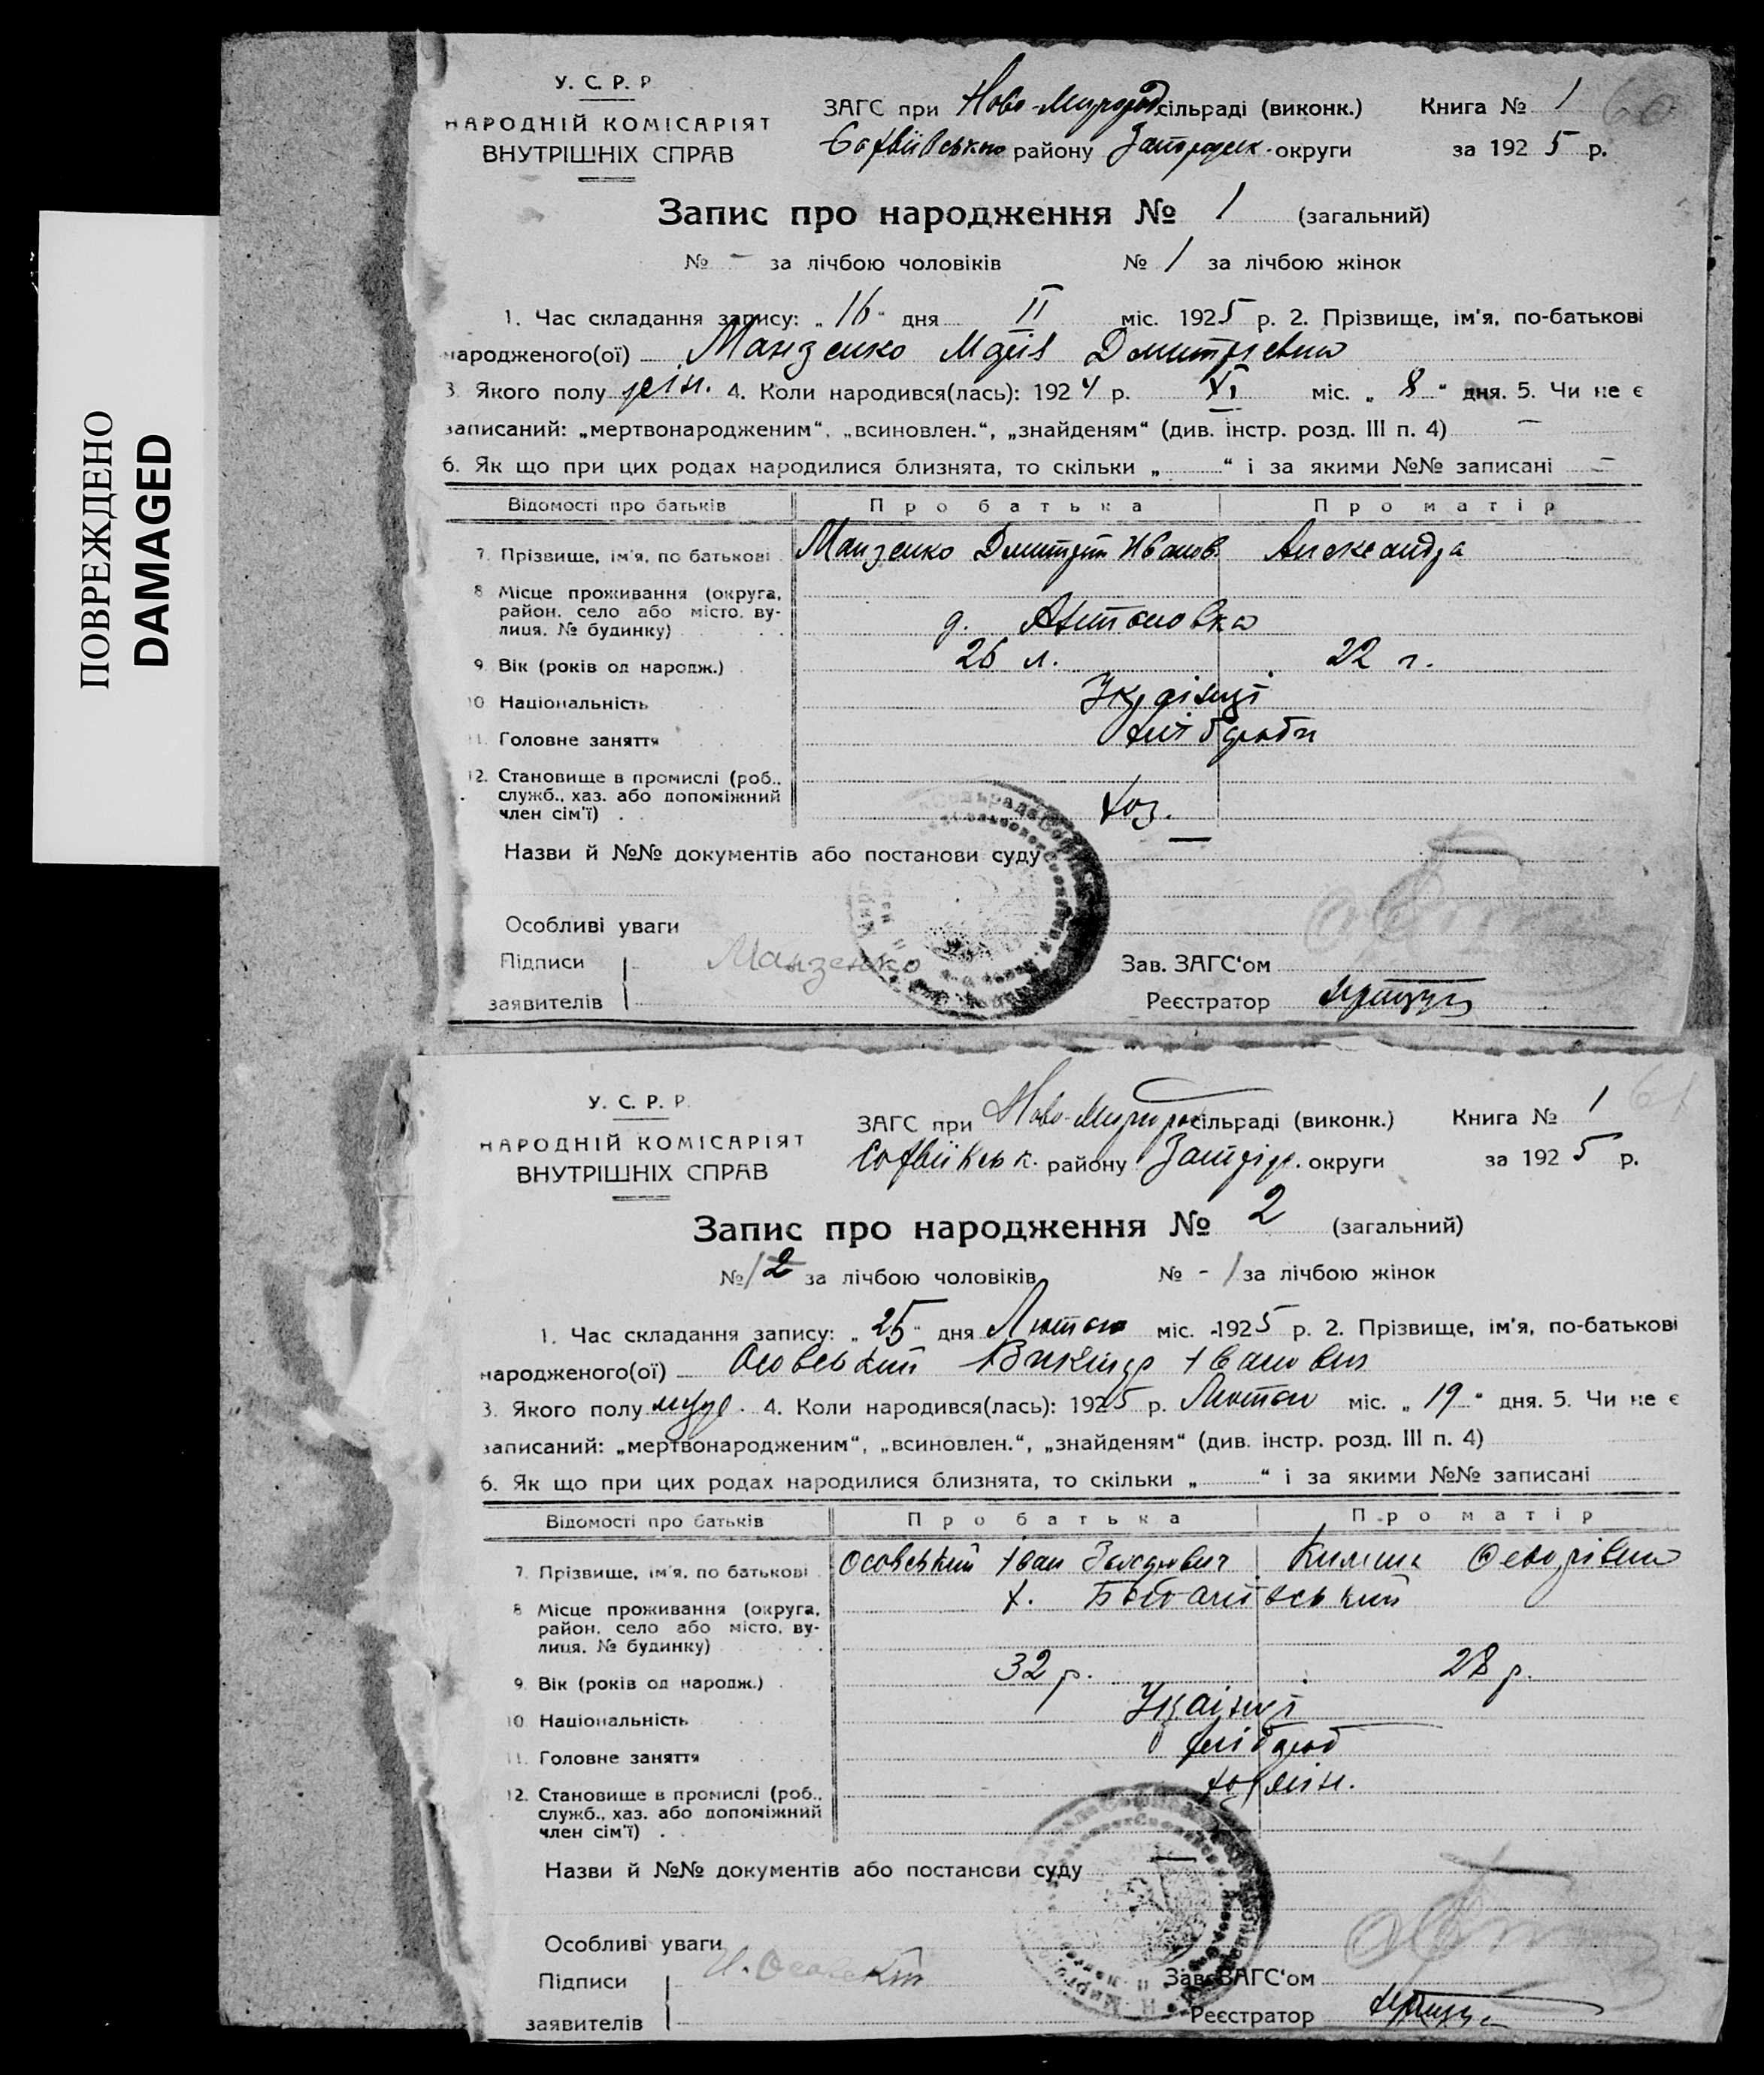 ПОВРЕЖДЕНО
DAMAGED
У. С. Р. Р
НАРОДНІЙ КОМІСАРІЯТ
ВНУТРІШНІХ СПРАВ
ЗАГС при Ново-Миргород сільраді (виконк.) Книга № 1 60
району округи за 1925 р.
Запис про народження № 1 (загальний)
№ - за лічбою чоловіків № 1 за лічбою жінок
1. Час складання запису: „16“ дня II міс. 1925 р. 2. Прізвище, ім'я, по-батькові
народженого(ої) Манзенко Дмитрієвна
3. Якого полу жін. 4. Коли народився(лась): 1924 р. XI міс. „8“ дня. 5. Чи не є
записаний: „мертвонародженим“, „всиновлен.“, „знайденям“ (див. інстр. розд. III п. 4) —
6. Як що при цих родах народилися близнята, то скільки „ “ і за якими №№ записані -
Відомості про батьків Про батька Про матір
7. Прізвище, ім'я, по батькові Манзенко Дмитрий Иванов. Александра
8 Місце проживання (округа,
район. село або місто, ву-
лиця. № будинку) д. Антоновка
9. Вік (років од народж.) 26 л. 22 г.
10 Національність Українці
11. Головне заняття хлібороби
12. Становище в промислі (роб.,
служб., хаз. або допоміжний
член сім'ї) хоз.
Назви й №№ документів або постанови суду —
Особливі уваги
Підписи Манзенко Зав. ЗАГС'ом
заявителів Реєстратор
У. С. Р. Р.
НАРОДНІЙ КОМІСАРІЯТ
ВНУТРІШНІХ СПРАВ
ЗАГС при Ново-Миргород сільраді (виконк.) Книга № 1 61
району округи за 1925 р.
Запис про народження № 2 (загальний)
№ 1 2 за лічбою чоловіків № - 1 за лічбою жінок
1. Час складання запису: „25“ дня Лютого міс. 1925 р. 2. Прізвище, ім'я, по-батькові
народженого(ої) Осовський Іванович
3. Якого полу муж. 4. Коли народився(лась): 1925 р. Лютого міс. „19“ дня. 5. Чи не є
записаний: „мертвонародженим“, „всиновлен.“, „знайденям“ (див. інстр. розд. III п. 4)
6. Як що при цих родах народилися близнята, то скільки „ “ і за якими №№ записані
Відомості про батьків Про батька Про матір
7. Прізвище, ім'я, по батькові Осовський Іван
8 Місце проживання (округа, х.
район. село або місто, ву-
лиця. № будинку)
9. Вік (років од народж.) 32 р. 28 р.
10 Національність Українці
11. Головне заняття хлібороб
12. Становище в промислі (роб.,
служб., хаз. або допоміжний
член сім'ї)
Назви й №№ документів або постанови суду —
Особливі уваги
Підписи Зав. ЗАГС'ом
заявителів Реєстратор